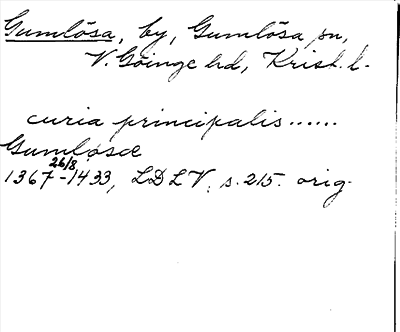 Gumlösa, by, Gumlösa sn,
V. Göinge hd, Krist. l.
curia principalis......
Gumløsæ
1367 26/8 - 1433, LDLV, s. 215. orig.